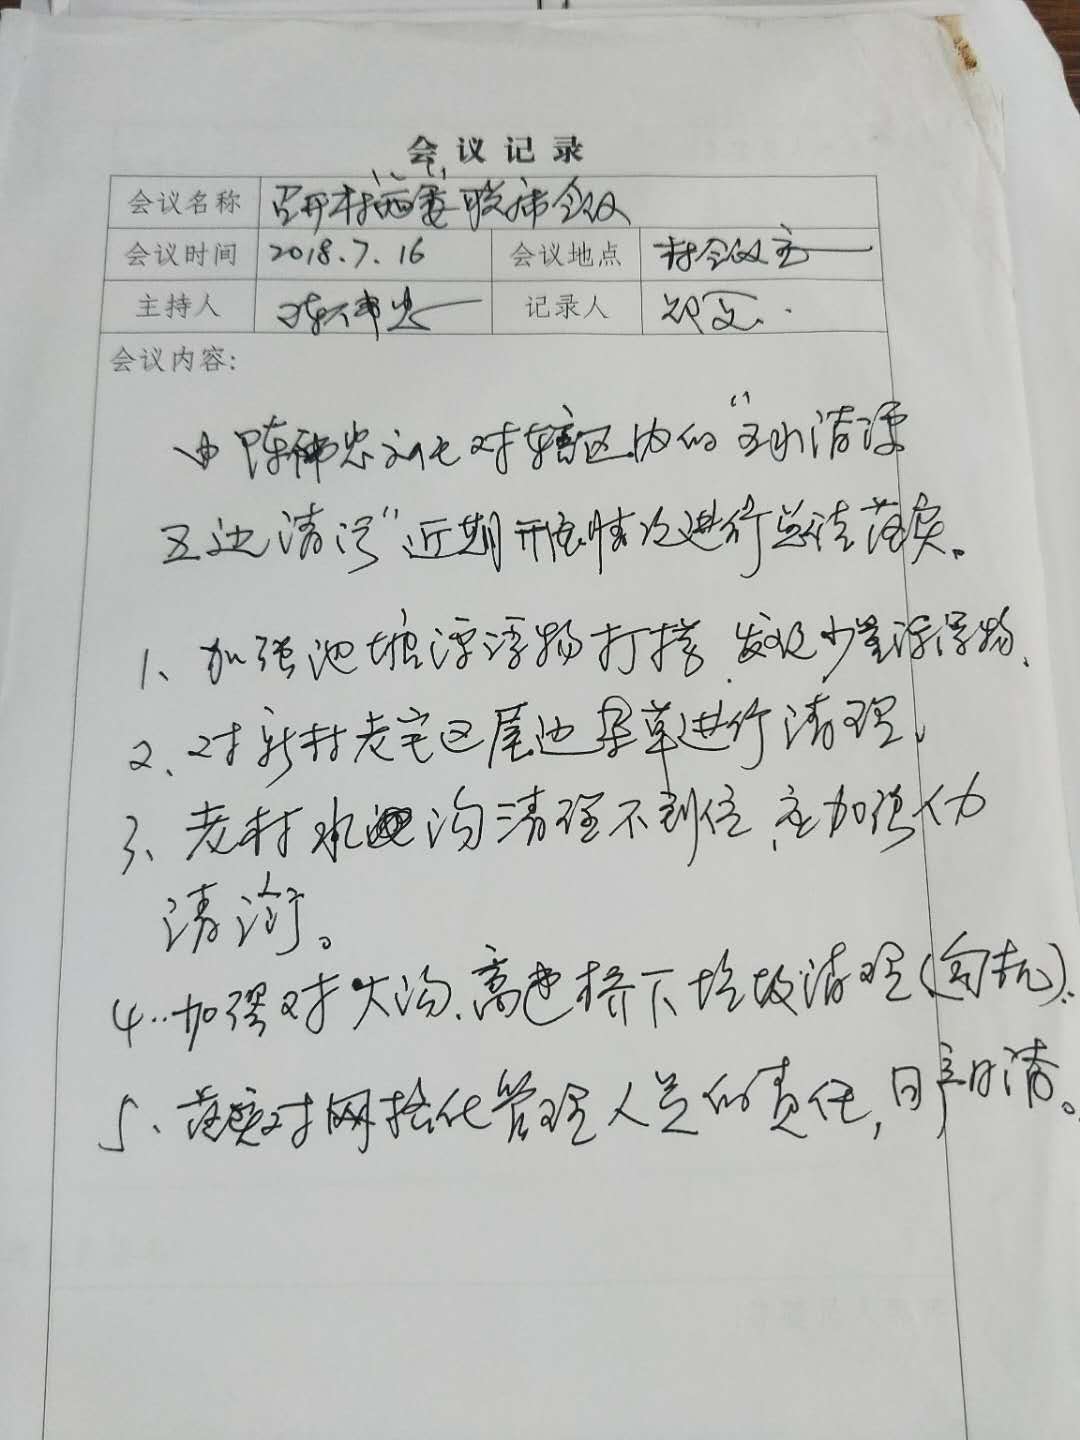 会议记录
会议名称 召开村"两委"联席会议
会议时间 2018.7.16 会议地点 村会议室
主持人 陈伟忠 记录人
会议内容:
由陈伟忠对辖区内的"五水清源
五边清污"近期开展情况进行总结落实。
1、加强池塘漂浮物打捞,发现少量漂浮物、
2、对新村老宅区屋边杂草进行清理、
3、老村水沟清理不到位,应加强
清淤。
4..加强对大沟、高速桥下垃圾清理
5、落实对网格化管理人员的责任,日产日清。